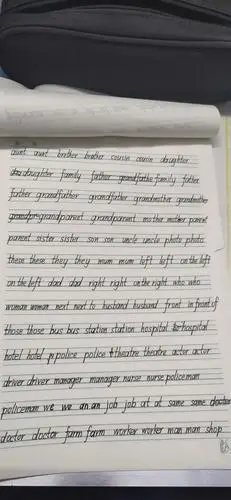 aunt aunt brother brother cousin cousin daughter
daughter family father grandfather family father
father grandfather grandfather grandmother grandmother
grandparent grandparent mother mother parent
parent sister sister son son uncle uncle photo photo
these these they they mum mum left left on the left
on the left dad dad right right on the right who who
woman woman next next to husband husband front in front of
those those bus bus station station hospital hospital
hotel hotel police police theatre theatre actor actor
driver driver manager manager nurse nurse policeman
policeman we we an an job job at at same same doctor
doctor doctor farm farm worker worker man man shop